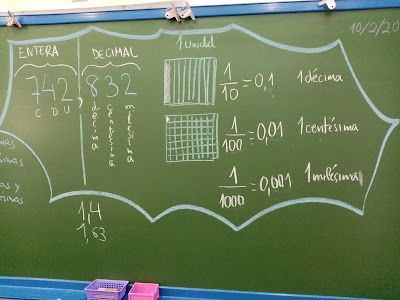 10/2/20
1 Unidad
ENTERA DECIMAL
742,832
C D U décima centésima milésima
1/10 = 0,1 1 décima
1/100 = 0,01 1 centésima
1/1000 = 0,001 1 milésima
1,4
1,63